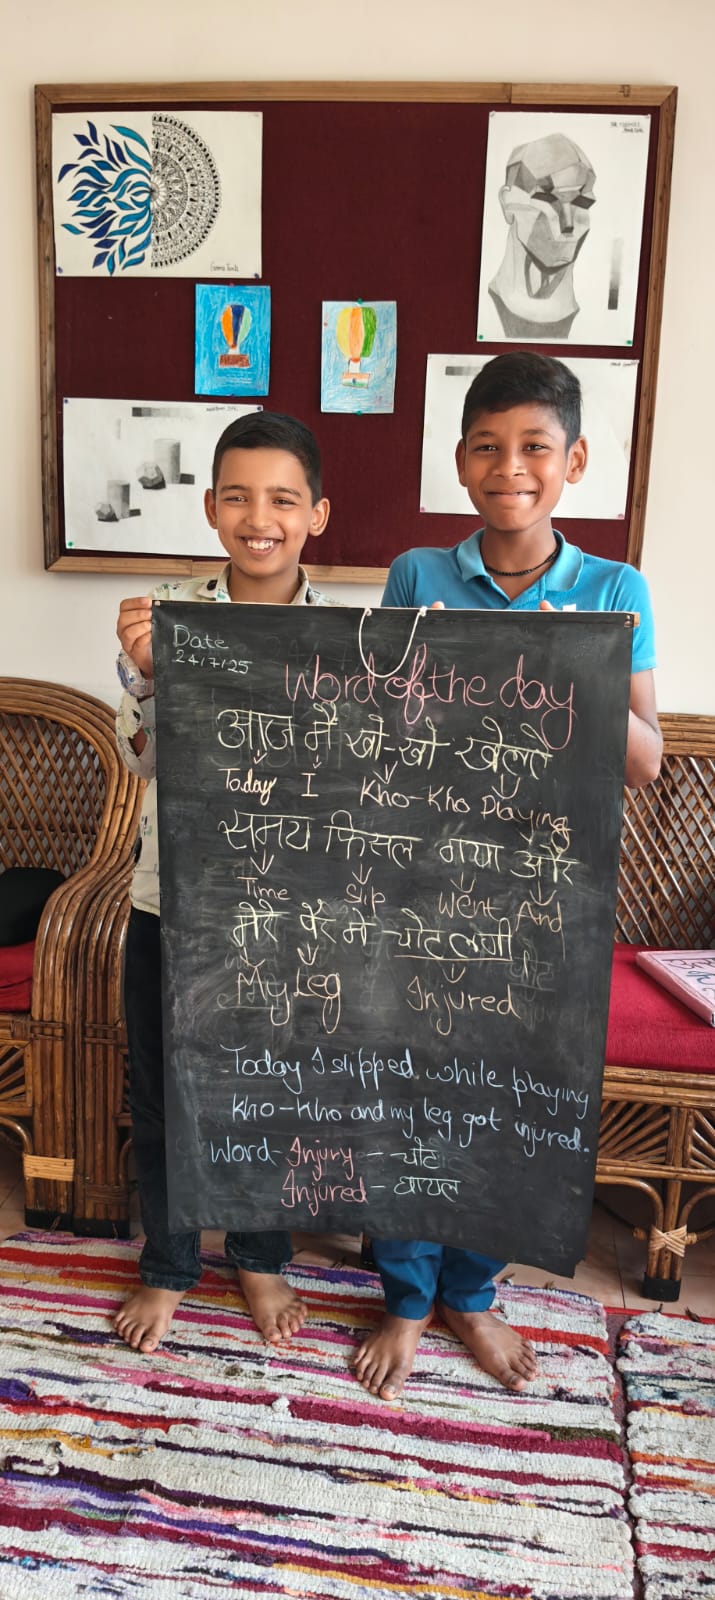 Date
24/7/25
Word of the day
आज मैं खो-खो खेलते
Today I Kho-Kho Playing
समय फिसल गया और
Time Slip Went And
मेरे पैर में चोट लगी
My Leg Injured
Today I slipped while playing
Kho-Kho and my leg got injured.
Word- Injury - चोट
Injured - घायल